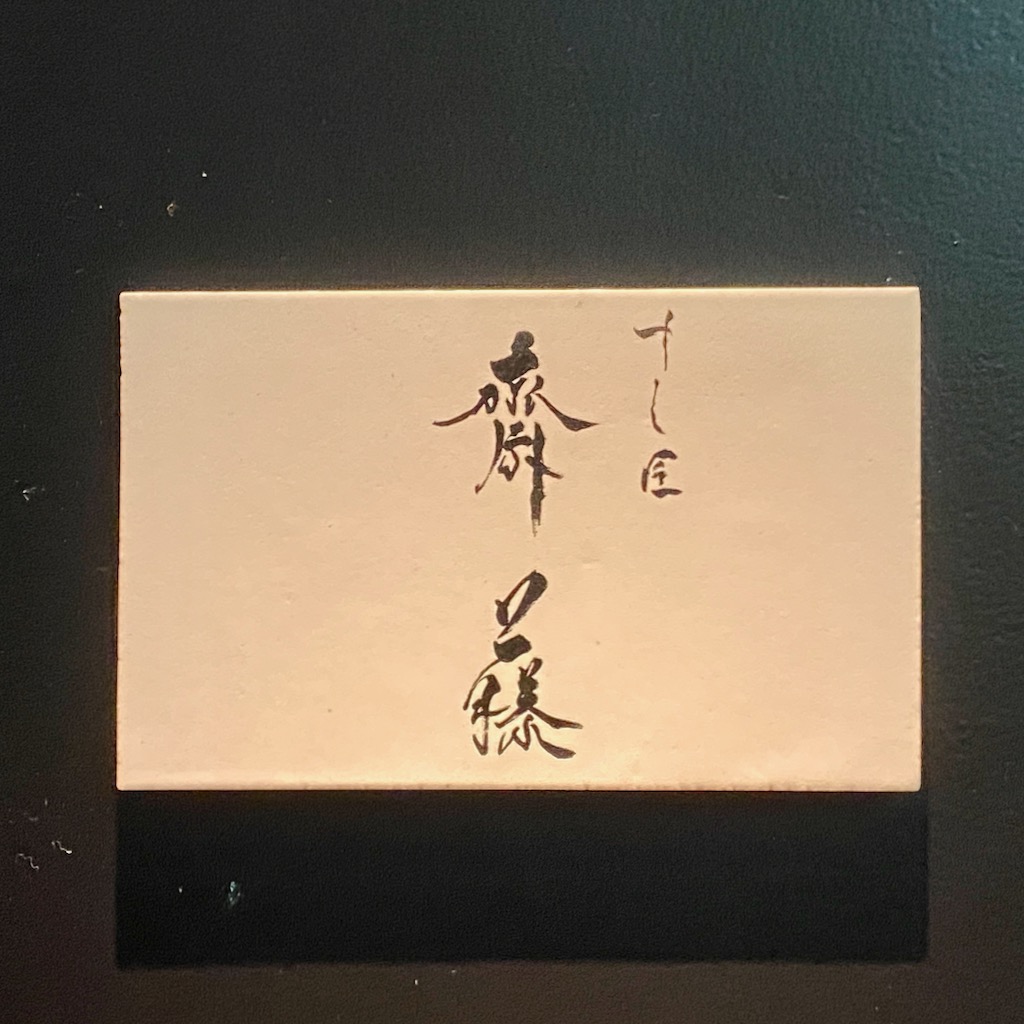 すし匠
齋藤